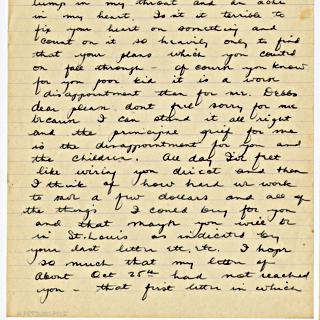 lump in my throat and an ache
in my heart. Isn't it terrible to
fix your heart on something and
count on it so heavily only to find
that your plans which you counted
on fall through of course you know
for you poor kid it is a worse
disappointment than for me. Debbs
dear please dont feel sorry for me
because I can stand it all right
and the principine grief for me
is the disappointment for you and
the children. All day I've felt
like wiring you direct and then
I think of how hard we work
to save a few dollars and all of
the things I could buy for you
and that maybe you will be
in St. Louis as indicated by
your last letter etc. etc. I hope
so much that my letter of
about Oct 25th had not reached
you - that first letter in which